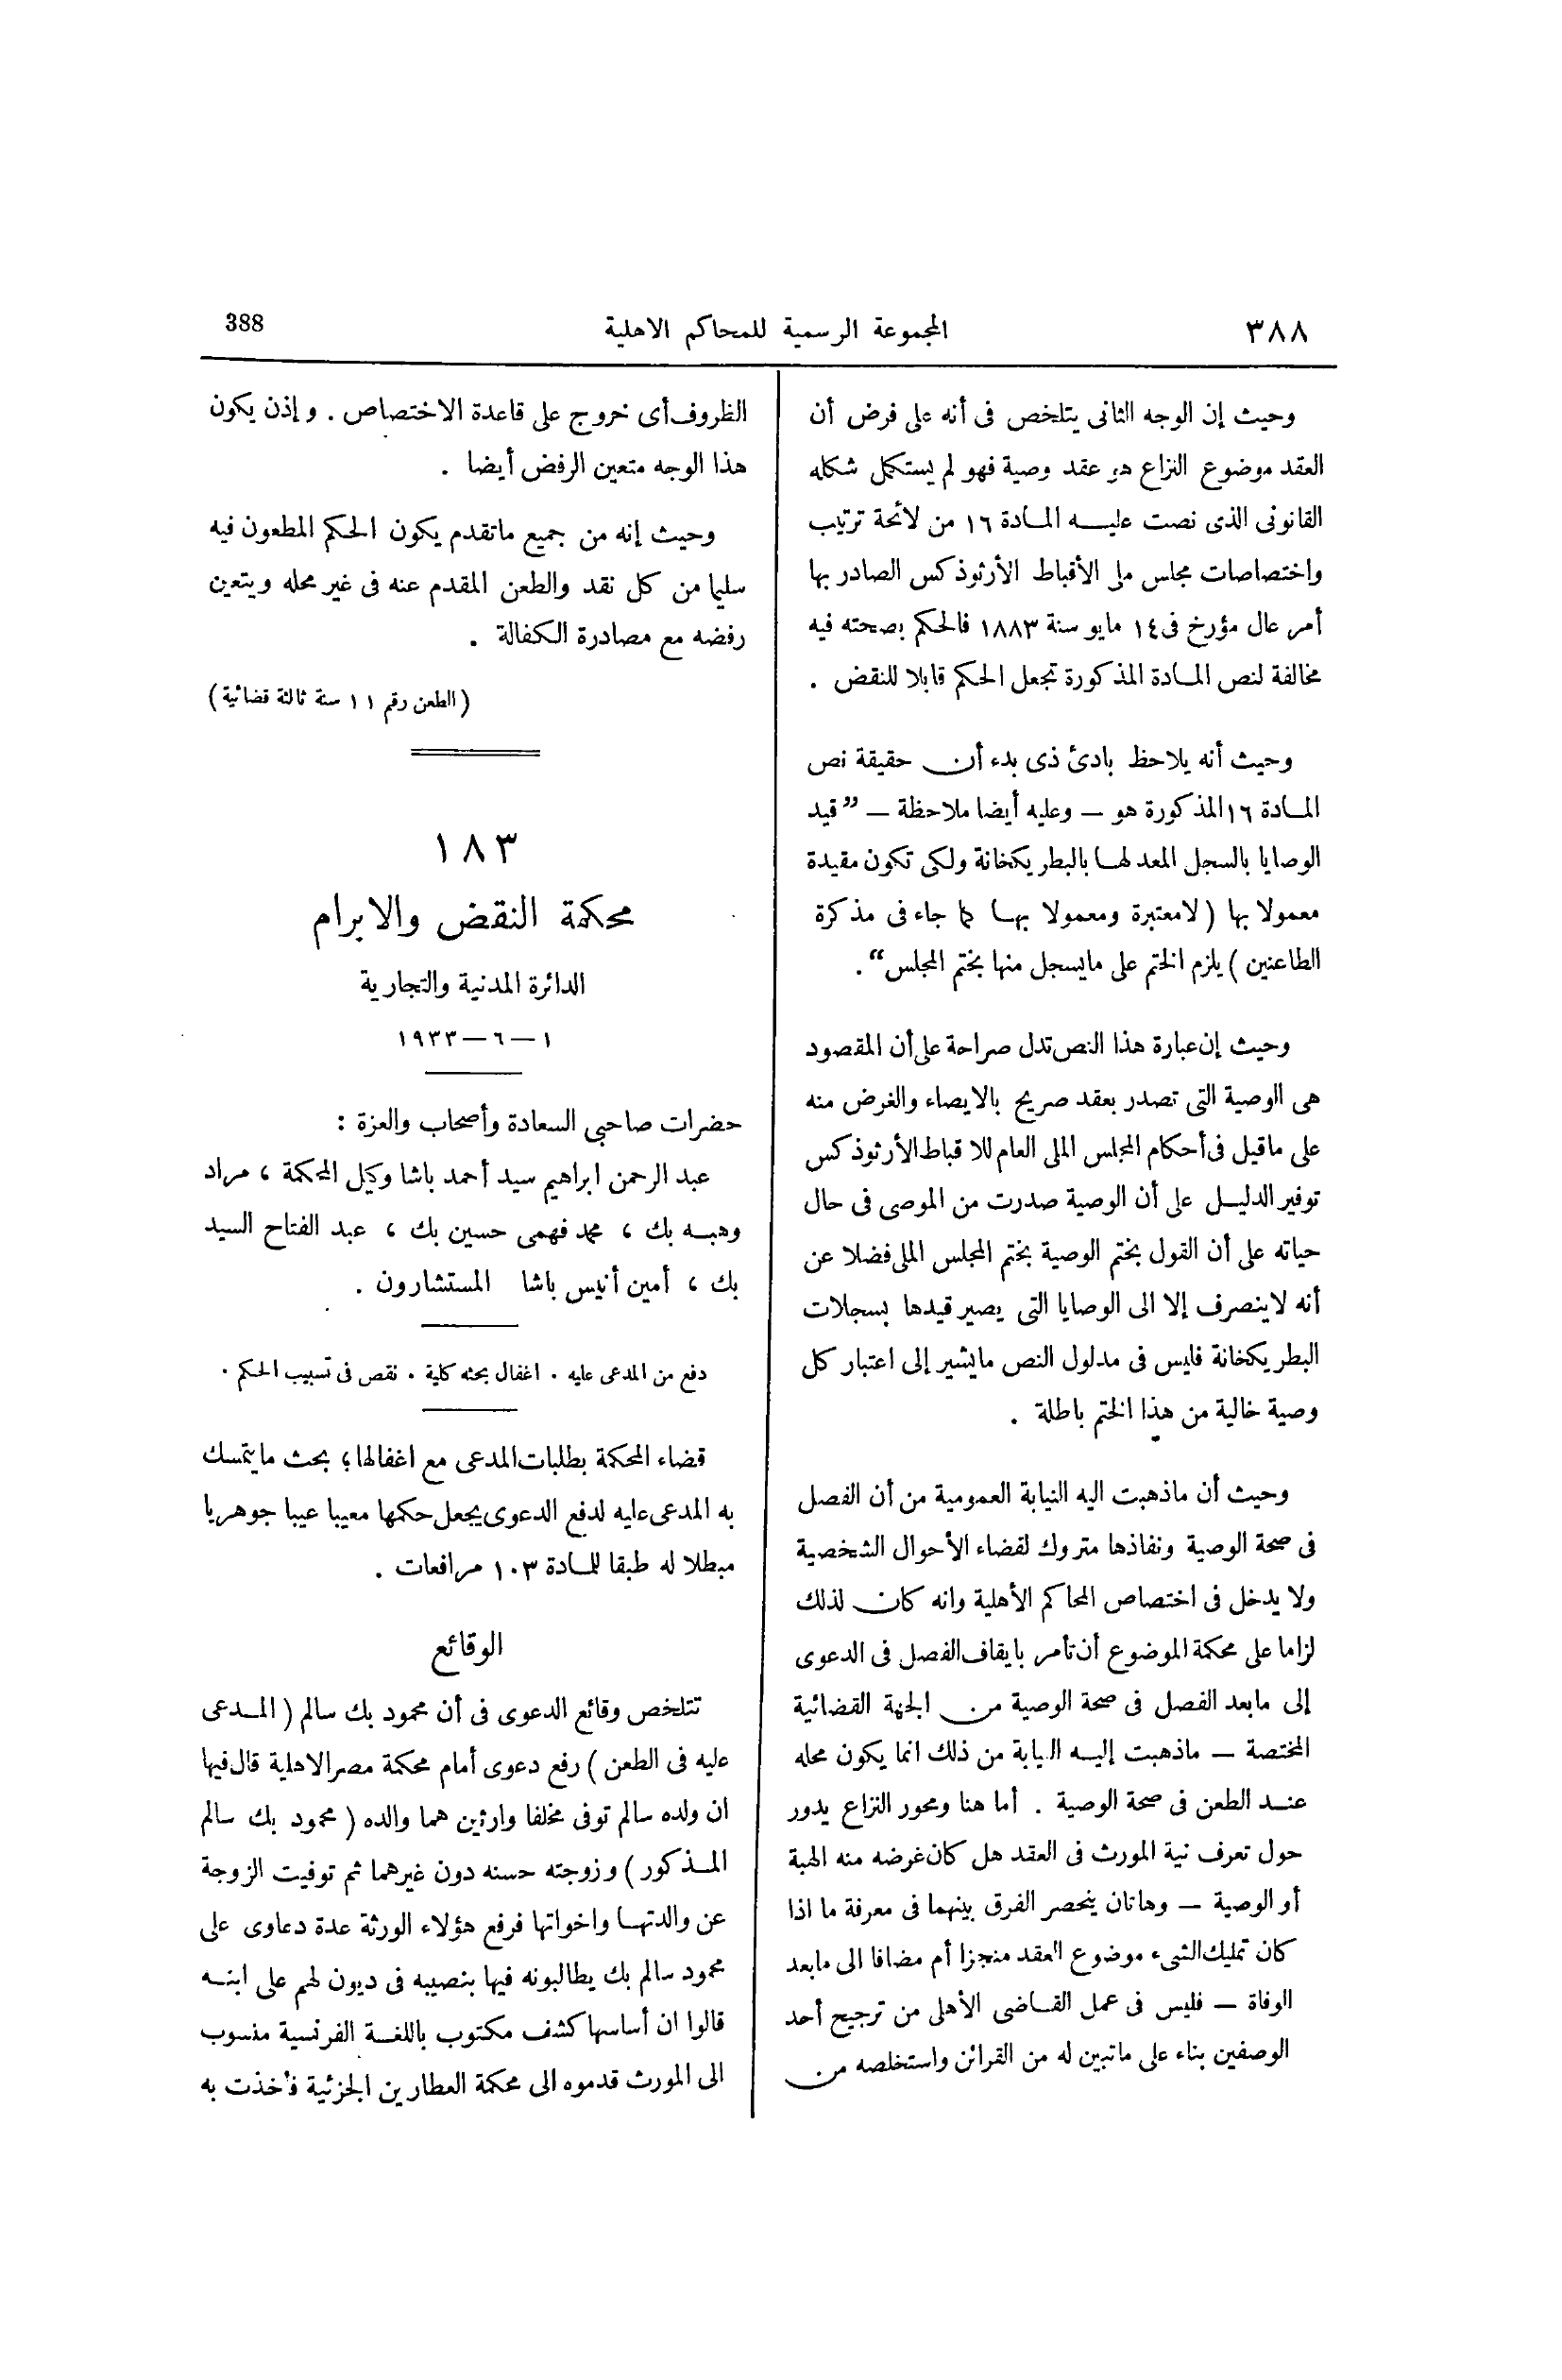 ٣٨٨
المجموعة الرسمية للمحاكم الاهلية
388
وحيث إن الوجه الثانى يتلخص فى أنه على فرض أن
العقد موضوع النزاع هو عقد وصية فهو لم يستكمل شكله
القانونى الذى نصت عليـــه المــادة ١٦ من لائحة ترتيب
واختصاصات مجلس ملى الأقباط الأرثوذكس الصادر بها
أمر عال مؤرخ فى ١٤ مايو سنة ١٨٨٣ فالحكم بصحته فيه
مخالفة لنص المــادة المذكورة تجعل الحكم قابلا للنقض .
وحيث أنه يلاحظ بادئ ذى بدء أن حقيقة نص
المــادة ١٦ المذكورة هو — وعليه أيضا ملاحظة — ”قيد
الوصايا بالسجل المعد لهــا بالبطريكخانة ولكى تكون مقيدة
معمولا بها (لا معتبرة ومعمولا بهــا كما جاء فى مذكرة
الطاعنين) يلزم الختم على مايسجل منها بختم المجلس“ .
وحيث إن عبارة هذا النص تدل صراحة على أن المقصود
هى الوصية التى تصدر بعقد صريح بالايصاء والغرض منه
على ماقيل فى أحكام المجلس الملى العام للاقباط الأرثوذكس
توفير الدليــل على أن الوصية صدرت من الموصى فى حال
حياته على أن القول بختم الوصية بختم المجلس الملى فضلا عن
أنه لاينصرف إلا الى الوصايا التى يصير قيدها بسجلات
البطريكخانة فليس فى مدلول النص مايشير إلى اعتبار كل
وصية خالية من هذا الختم باطلة .
وحيث أن ماذهبت اليه النيابة العمومية من أن الفصل
فى صحة الوصية ونفاذها متروك لقضاء الأحوال الشخصية
ولا يدخل فى اختصاص المحاكم الأهلية وانه كان لذلك
لزاما على محكمة الموضوع أن تأمر بايقاف الفصل فى الدعوى
إلى مابعد الفصل فى صحة الوصية من الجهة القضائية
المختصة — ماذهبت إليــه النيابة من ذلك انما يكون محله
عنــد الطعن فى صحة الوصية . أما هنا ومحور النزاع يدور
حول تعرف نية المورث فى العقد هل كان غرضه منه الهبة
أو الوصية — وهاتان ينحصر الفرق بينهما فى معرفة ما اذا
كان تمليك الشىء موضوع العقد منجزا أم مضافا الى مابعد
الوفاة — فليس فى عمل القــاضى الأهلى من ترجيح أحد
الوصفين بناء على ماتبين له من القرائن واستخلصه من
الظروف أى خروج على قاعدة الاختصاص . وإذن يكون
هذا الوجه متعين الرفض أيضا .
وحيث إنه من جميع ماتقدم يكون الحكم المطعون فيه
سليما من كل نقد والطعن المقدم عنه فى غير محله ويتعين
رفضه مع مصادرة الكفالة .
(الطعن رقم ١١ سنة ثالثة قضائية)
١٨٣
محكمة النقض والابرام
الدائرة المدنية والتجارية
١ — ٦ — ١٩٣٣
حضرات صاحبى السعادة وأصحاب والعزة :
عبد الرحمن ابراهيم سيد أحمد باشا وكيل المحكمة ، مراد
وهبــه بك ، محمد فهمى حسين بك ، عبد الفتاح السيد
بك ، أمين أنيس باشا المستشارون .
دفع من المدعى عليه . اغفال بحثه كلية . نقص فى تسبيب الحكم .
قضاء المحكمة بطلبات المدعى مع اغفالها؛ بحث مايتمسك
به المدعى عليه لدفع الدعوى يجعل حكمها معيبا عيبا جوهريا
مبطلا له طبقا للمــادة ١٠٣ مرافعات .
الوقائع
تتلخص وقائع الدعوى فى أن محمود بك سالم (المــدعى
عليه فى الطعن) رفع دعوى أمام محكمة مصر الاهلية قال فيها
ان ولده سالم توفى مخلفا وارثين هما والده (محمود بك سالم
المــذكور) وزوجته حسنه دون غيرهما ثم توفيت الزوجة
عن والدتهــا واخواتها فرفع هؤلاء الورثة عدة دعاوى على
محمود سالم بك يطالبونه فيها بنصيبه فى ديون لهم على ابنــه
قالوا ان أساسها كشف مكتوب باللغــة الفرنسية منسوب
الى المورث قدموه الى محكمة العطارين الجزئية فأخذت به